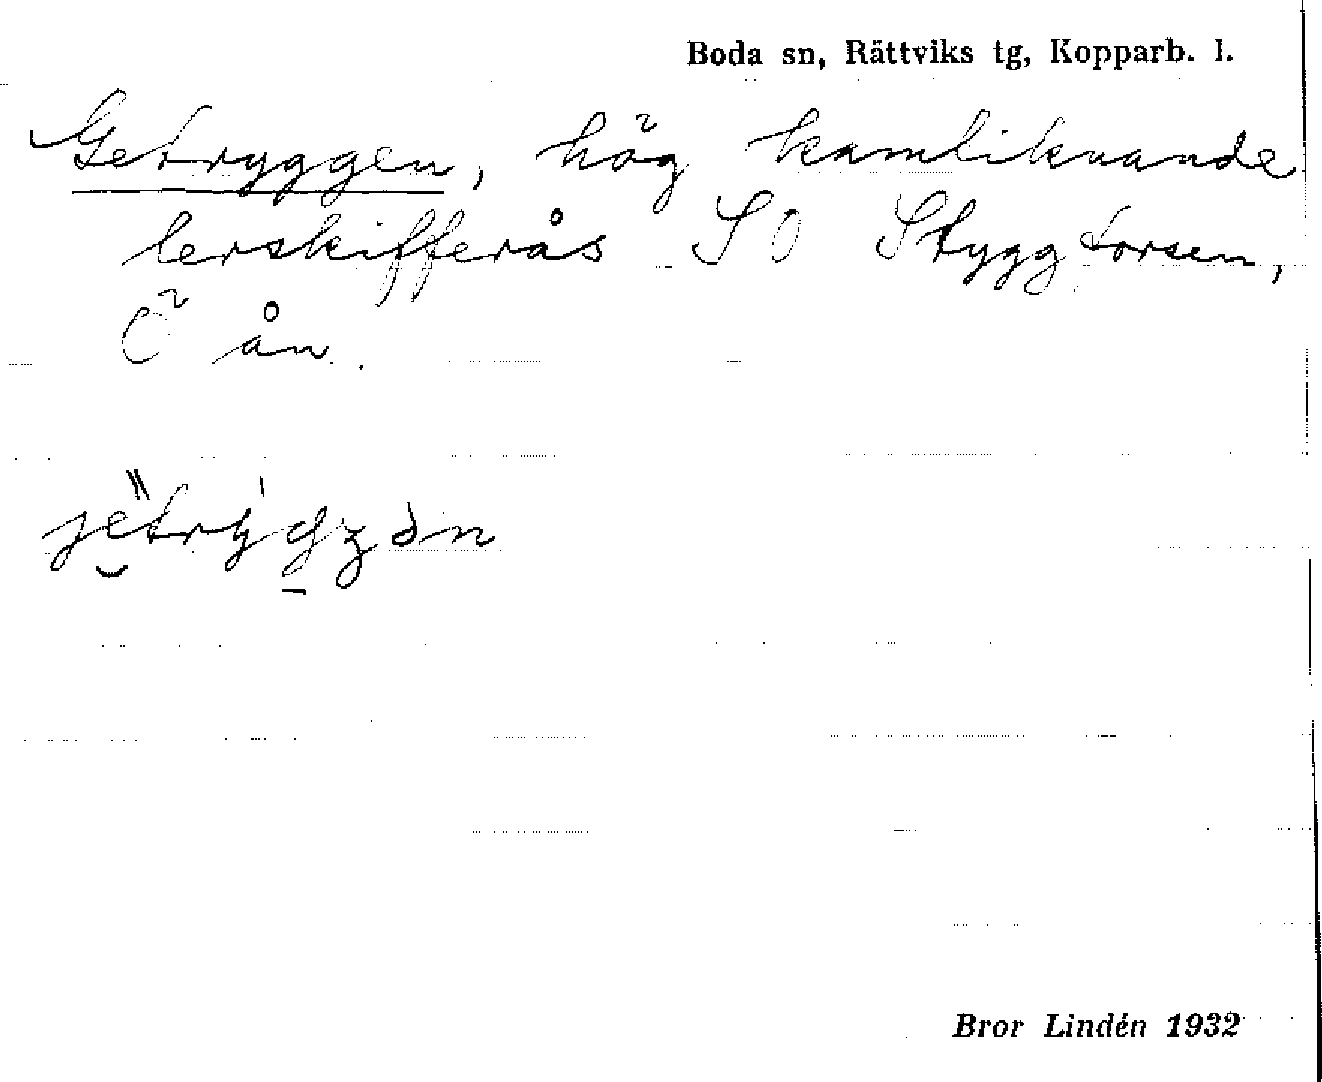 Boda sn, Rättviks tg, Kopparb. l.
Getryggen, hög kamliknande
lerskifferås SO Styggforsen,
Ö ån.
Bror Lindén 1932